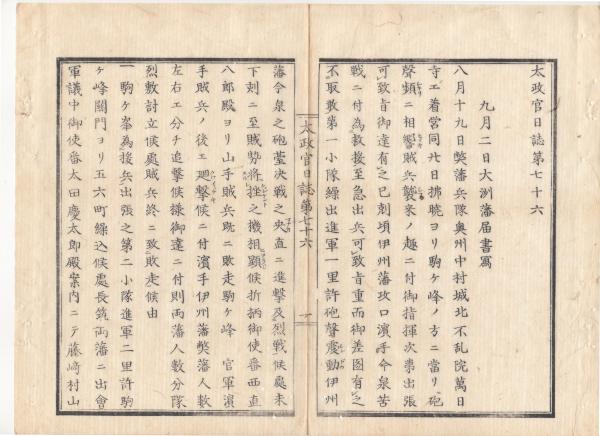 太政官日誌第七十六
九月二日大洲藩届書写
八月十九日獘藩兵隊奥州中村城北不乱院萬日
寺エ着営同廿日拂暁ヨリ駒ケ峰ノ方ニ當リ砲
聲頻ニ相響賊兵襲来ノ趣ニ付御指揮次㐧出張
可致旨御達有之已刻頃伊州藩攻口濱手今泉苦
戦ニ付為救援至急出兵可致旨重而御差圖有之
不取敢第一小隊繰出進軍一里許砲聲震動伊州
太政官日誌第七十六
一
藩今泉之砲䑓決戦之央直ニ進撃及烈戦候處未
下刻ニ至賊勢将挫之機相顕候折柄御使番西直
八郎殿ヨリ山手賊兵既ニ敗走駒ケ峰 官軍濱
手賊兵ノ後エ廻撃候ニ付濱手伊州藩獘藩人数
左右エ分チ追撃候様御達ニ付則両藩人数分隊
烈敷討立候處賊兵終ニ致敗走候由
一駒ケ峯為援兵出張之第二小隊進軍二里許駒
ケ峰關門ヨリ五六町繰込候處長筑両藩ニ出會
軍議中御使番太田慶太郎殿案内ニテ藤崎村山